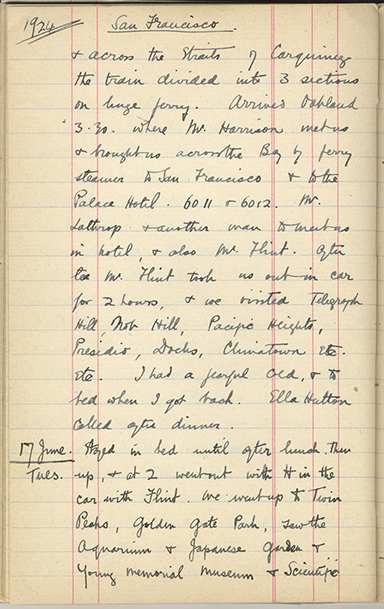 1924 San Francisco.
& across the Straits of Carquinez
the train divided into 3 sections
on huge ferry. Arrived Oakland
3.30. where Mr. Harrison met us
& brought us across the Bay by ferry
steamer to San Francisco & to the
Palace Hotel. 6011 & 6012. Mr.
Lathrop & another man to meet us
in hotel, & also Mr. Flint. After
tea Mr. Flint took us out in car
for 2 hours, & we visited Telegraph
Hill, Nob Hill, Pacific Heights,
Presidio, Docks, Chinatown etc.
etc. I had a fearful cold, & to
bed when I got back. Ella Hutton
called after dinner.
17 June. Stayed in bed until after lunch then
Tues. up, & at 2 went out with H in the
car with Flint. We went up to Twin
Peaks, Golden Gate Park, saw the
Aquarium & Japanese Garden &
Young Memorial Museum & Scientific